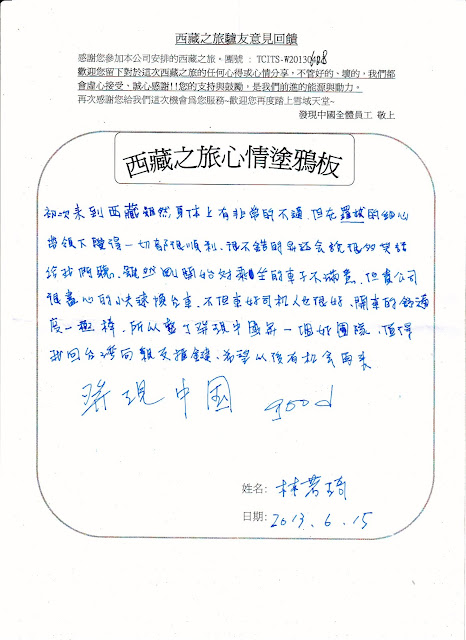 西藏之旅驢友意見回饋
感謝您參加本公司安排的西藏之旅。團號：TCITS-W20130608
歡迎您留下對於這次西藏之旅的任何心得或心情分享，不管好的、壞的，我們都
會虛心接受、誠心感謝!!您的支持與鼓勵，是我們前進的能源與動力。
再次感謝您給我們這次機會為您服務~歡迎您再度踏上雪域天堂~
發現中國全體員工 敬上
西藏之旅心情塗鴉板
初次來到西藏雖然身体上有非常的不適，但在羅斌的細心
帶領下覺得一切都很順利，很不錯的是還会說很多笑話
給我們聽，雖然剛開始對來台的車子不滿意，但貴公司
很盡心的火速換台車，不但車好司机人也很好、開車的舒適
度一極棒，所以貴發現中國是一個好團隊，值得
我回台灣向親友推薦，希望以後有机会再来
發現中国 good
姓名: 林若琦
日期: 2013.6.15